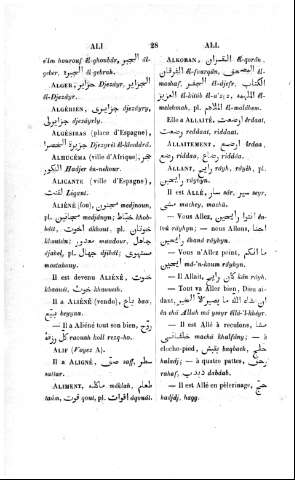 ALI 28 ALI
a'lm houroûf êl-ghoubâr, الجبر êl-
geber. الجبور êl-gebrah.
ALGER, جزاير Djezayr. الجزاير
êl-Djezâyr.
ALGÉRIEN, جزايرى djezâyry,
جزايرلى djezâyrly.
ALGÉSIRAS (place d'Espagne),
جزيرة الخضرا Djezyrê êl-khedârâ.
ALHUCÉMA (ville d'Afrique), حجر
النكور Hadjer ên-nakour.
ALICANTE (ville d'Espagne)
لقنت Liqent.
ALIÉNÉ (fou), مجنون medjnoun,
pl. مجانين medjânyn; خبّاط khob-
bât, خوت âkhout, pl. خوتان
khoutân; معدور maadour; جاهل
djahel, pl. جهال djihâl; مستهوى
mostahouy.
Il est devenu ALIÉNÉ, خوت
khaouâ, خوت khaoueth.
Il a ALIÉNÉ (vendu), باع baa,
بيع beyaa.
— Il a Aliéné tout son bien, روّح
كل رزقه raouah koll rezq-ho.
ALIF (Voyez A).
Il a ALIGNÉ, صف saff, سطر
sattar.
ALIMENT, ماكله mâklah, طعام
taâm, قوت qout, pl. اقوات âqouât.
ALKORAN, القران êl-qorân.
الفرقان êl-fourqân, المصحف êl-
mashaf, الجفر êl-djefr, الكتاب
êl-kitâb êl-a'zyz, العزيز
mélehmah, pl. الملاحم êl-malâhem.
Elle a ALLAITÉ, ارضعت êrdaat,
رضعت reddaat, riddaat.
ALLAITEMENT, ارضع êrdaa,
رضع riddaa, رضاع reddâa.
ALLANT, راى rây, رايح râyh, pl.
رايحين râyhyn.
Il est ALLÉ, سار sâr, سير seyr,
مشى machey, machâ.
— Vous Allez, انتوا رايحين êntouâ
râyhyn; — nous Allons, احنا
رايحين êhanâ râyhyn.
— Vous n'Allez point, ما انكم
رايحين mâ-n-koum râyhyn.
— Il Allait, كان رايح kân râyh.
— Tout va Aller bien, Dieu ai-
dant, ان شاء الله ما يصير الا الخير
ên châ Allah mâ yseyr îllâ-'l-khêyr.
— Il est Allé à reculons, مشا
خلفانى machâ khalfâny; — à
cloche-pied, بقبش baqbach, حجلج
haledj; — à quatre pattes, زحف
zahaf, دبدب dabdab.
— Il est Allé en pèlerinage, حجّ
hadjdj, hagg.